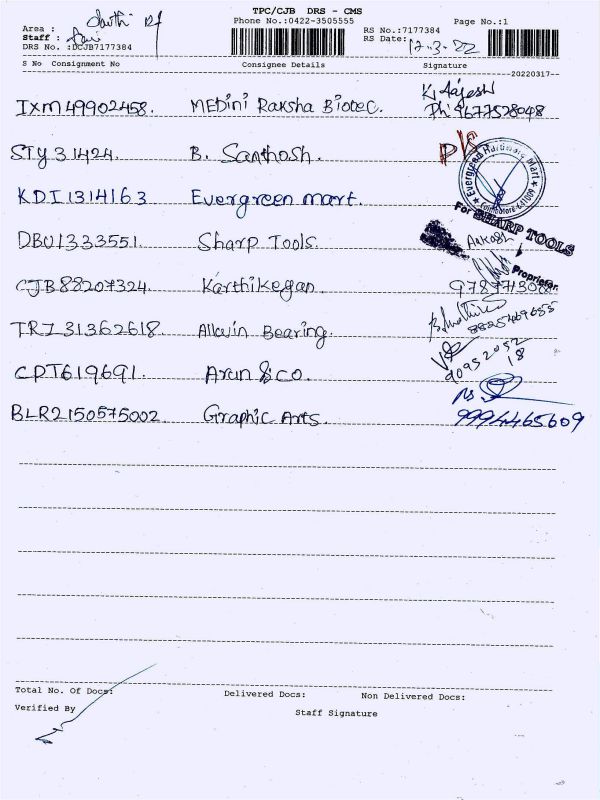 TPC/CJB DRS - CMS
Phone No.:0422-3505555
Page No.:1
Area :
Staff :
RS No.:7177384
RS Date: 17-3-22
DRS No. :DCJB7177384
S No Consignment No Consignee Details Signature
20220317
IXM49902458. MEDini Raksha Biotec. K. Rajesh
Ph 9677528048
STY31424. B. Santhosh.
KDI1314163 Evergreen mart. Evergreen Hardware Mart
Coimbatore-641009
For SHARP TOOLS
DBU1333551. Sharp Tools.
Proprietor.
CJB88207324 Karthikeyan
TRZ31362618. Allwin Bearing. 8825469655
CPT619691. Arun & co. 90952052
18
BLR2150575002. Graphic Arts. 9994465609
Total No. Of Docs: Delivered Docs: Non Delivered Docs:
Verified By
Staff Signature